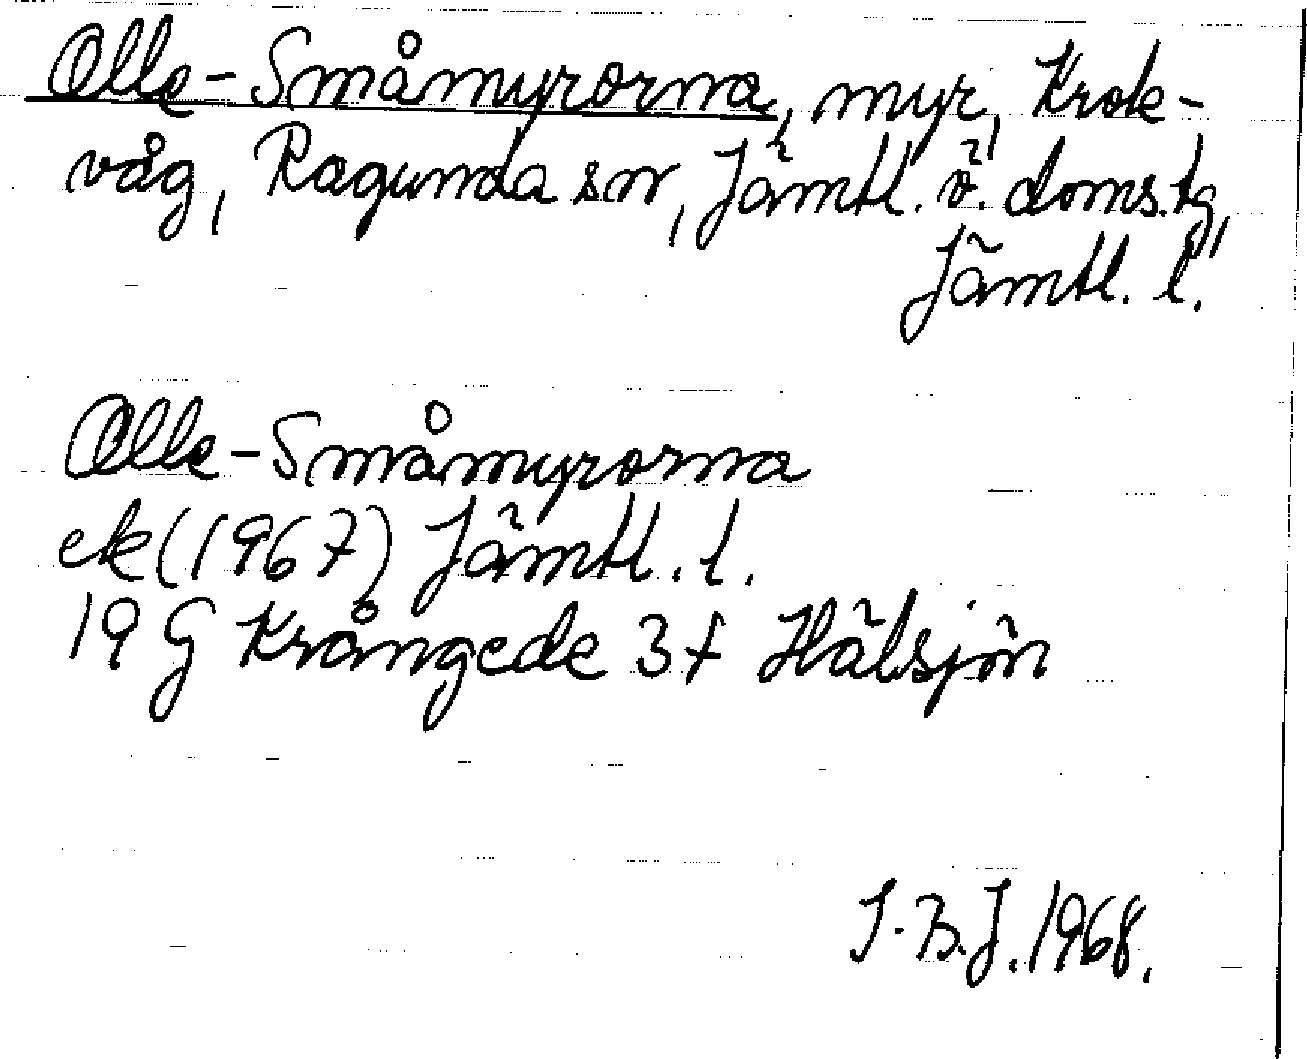 Olle-Småmyrorna, myr, Krok-
våg, Ragunda sn, Jämtl. ö. doms.tg,
Jämtl. l.
Olle-Småmyrorna
ek (1967) Jämtl. l.
19 G Krångede 3 f Hälsjön
I.B.J. 1968.